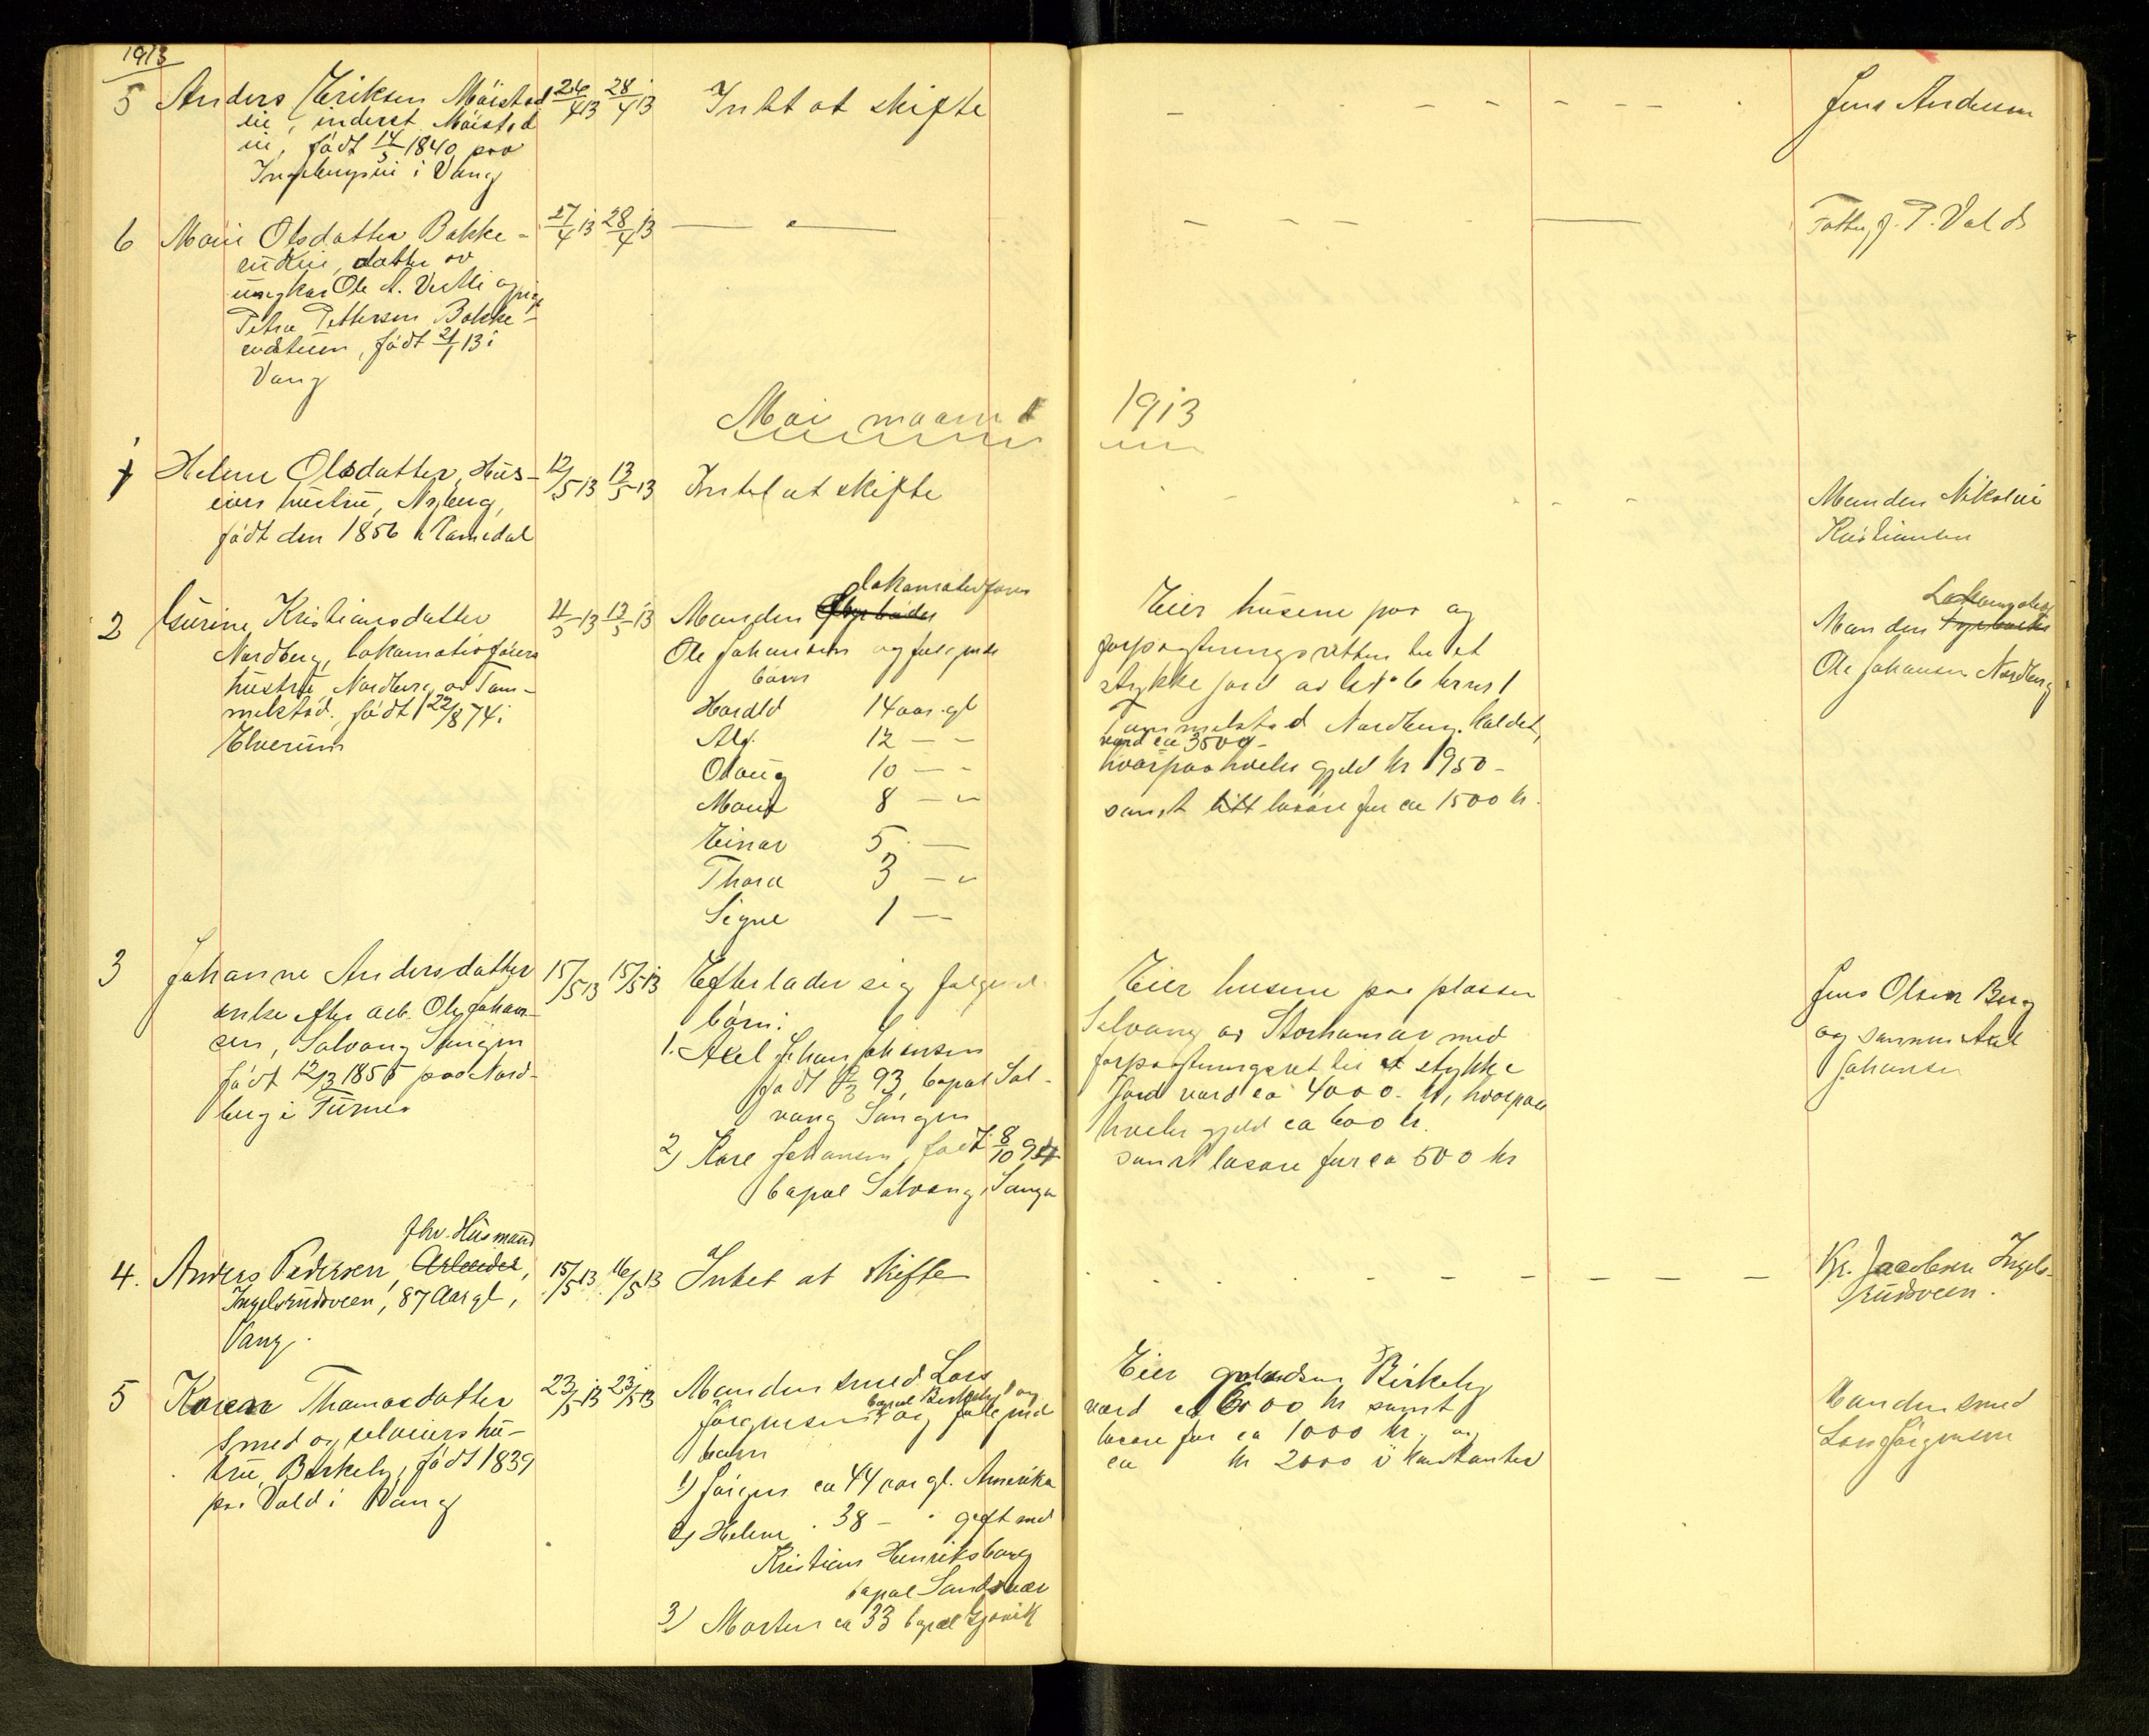 1913
5 Anders Eriksen Mæistad 26/4 13 28/4 13 Intet at skifte Jens Andersen
eie, inderst Mæistad
eie, født 14/5 1840 paa
i Vang
6 Marie Olsdatter Bakke- 27/4 13 28/4 13 — " — J. P. Vold
datter av
ungkar Ole A. og pige
Petra Pettersen Bakke-
født 21/1 13 i
Vang
Mai maaned 1913
1 Helene Olsdatter, Hus- 12/5 13 13/5 13 Intet at skifte Manden Nikolai
eiers hustru, Nyberg, Kristiansen
født den 1856 i Romedal
2 Gurine Kristiansdatter 11/5 13 13/5 13 Manden lokomotivfører Eier husene paa og Manden
Nordberg, lokomotivførers Ole Johansen og følgende forpagtningsretten til et Ole Johansen Nordberg
hustru, Nordberg av Tom- børn stykke jord av
melstad, født 22/8 74 i Harald 14 aar gl Tommelstad Nordberg kaldet,
Elverum Alf 12 — - værd ca 3500-
Olaug 10 — - hvorpaa hviler gjeld kr 1950-
8 — - samt løsøre for ca 1500 kr.
Einar 5 —
Thora 3 — -
Signe 1 —
3 Johanne Andersdatter 15/5 13 15/5 13 Efterlader sig følgende Eier husene paa pladsen Jens Olsen Berg
enke efter arb. Ole Johan- børn: Solvang av Storhamar med og sønnen Axel
sen, Solvang Sangen 1. Axel Johan Johansen forpagtningsret til et stykke Johansen
født 12/3 1855 paa Nord- født 93, bopæl Sol- jord værd ca 4000- kr, hvorpaa
berg i Furnes vang Sangen hviler gjeld ca 600 kr.
2) Kare Johansen, født 8/10 94 samt løsøre for ca 500 kr
bopæl Solvang, Sangen
fhv. Husmand
4. Anders Pedersen, Arbeider, 15/5 13 16/5 13 Intet at skifte Kr. Jacobsen Ingels-
Ingelsrudsveen, 87 Aar gl, rudsveen.
Vang.
5 Karen Thomasdatter 23/5 13 23/5 13 Manden smed Lars Eier Birkely Manden smed
smed og selveiers hu- Jørgensen bopæl Birkely og følgende værd ca 6000 kr samt Lars Jørgensen
stru, Birkely, født 1839 børn løsøre for ca 1000 kr, og
paa Vold i Vang 1) Jørgen ca 44 aar gl. Amerika ca kr 2000 i kontanter
2) Helene " 38 — " gift med
Kristian Henriksberg
bopæl Sandsvær
3) Morten ca 33 bopæl Gjøvik